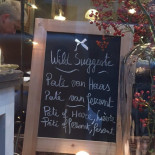 Wild Suggestie
Paté van Haas
Paté van fazant
Paté of
of fazant, fazant